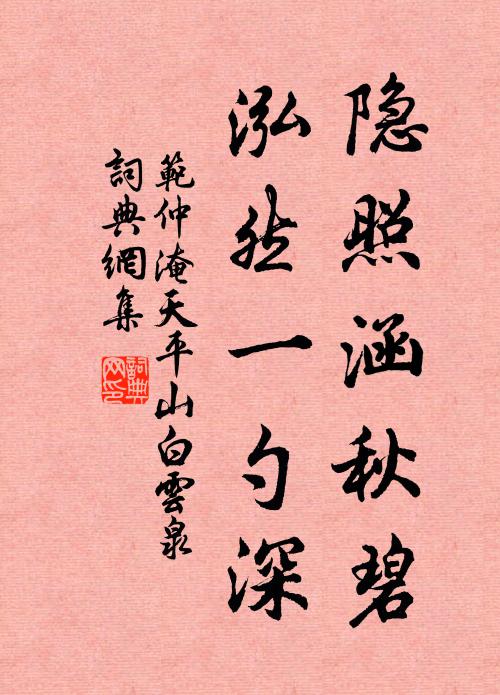 隐照涵秋碧
泓然一勺深
範仲淹天平山白雲泉
詞典網集
詞典
网印